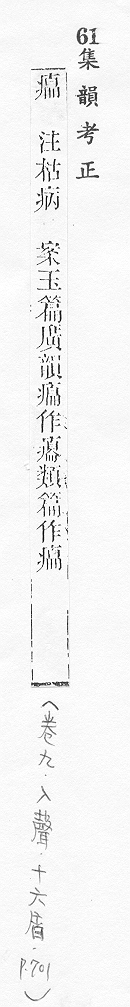 61集韻考正
㾯 注枯病 案玉篇廣韻㾯作㿇類篇作㾯
(卷九.入聲.十六屑.p.701)